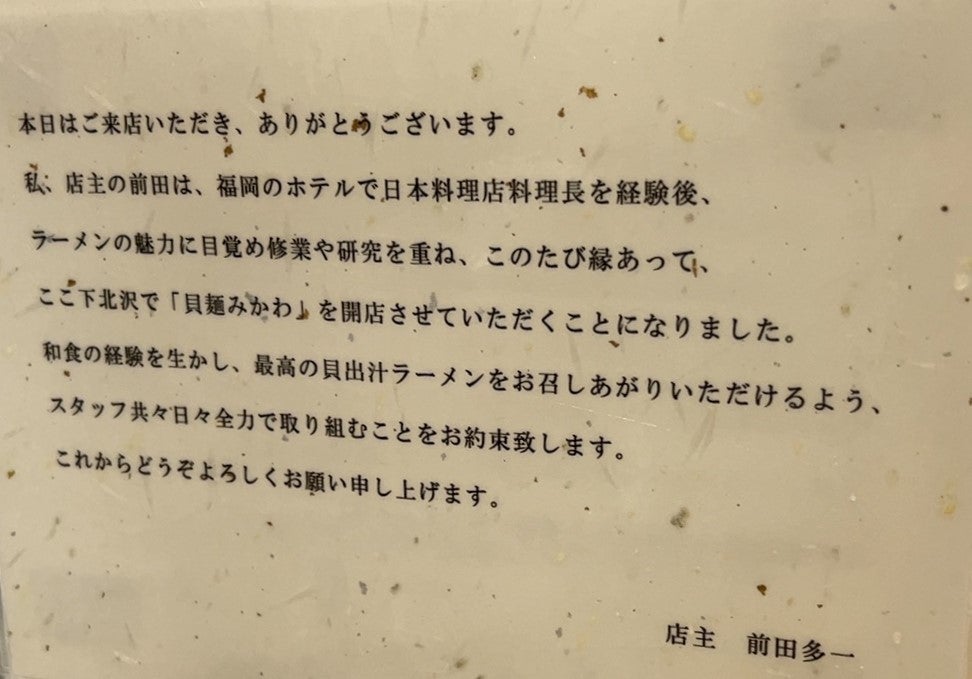 本日はご来店いただき、ありがとうございます。
私、店主の前田は、福岡のホテルで日本料理店料理長を経験後、
ラーメンの魅力に目覚め修業や研究を重ね、このたび縁あって、
ここ下北沢で「貝麺みかわ」を開店させていただくことになりました。
和食の経験を生かし、最高の貝出汁ラーメンをお召しあがりいただけるよう、
スタッフ共々日々全力で取り組むことをお約束致します。
これからどうぞよろしくお願い申し上げます。
店主　前田多一